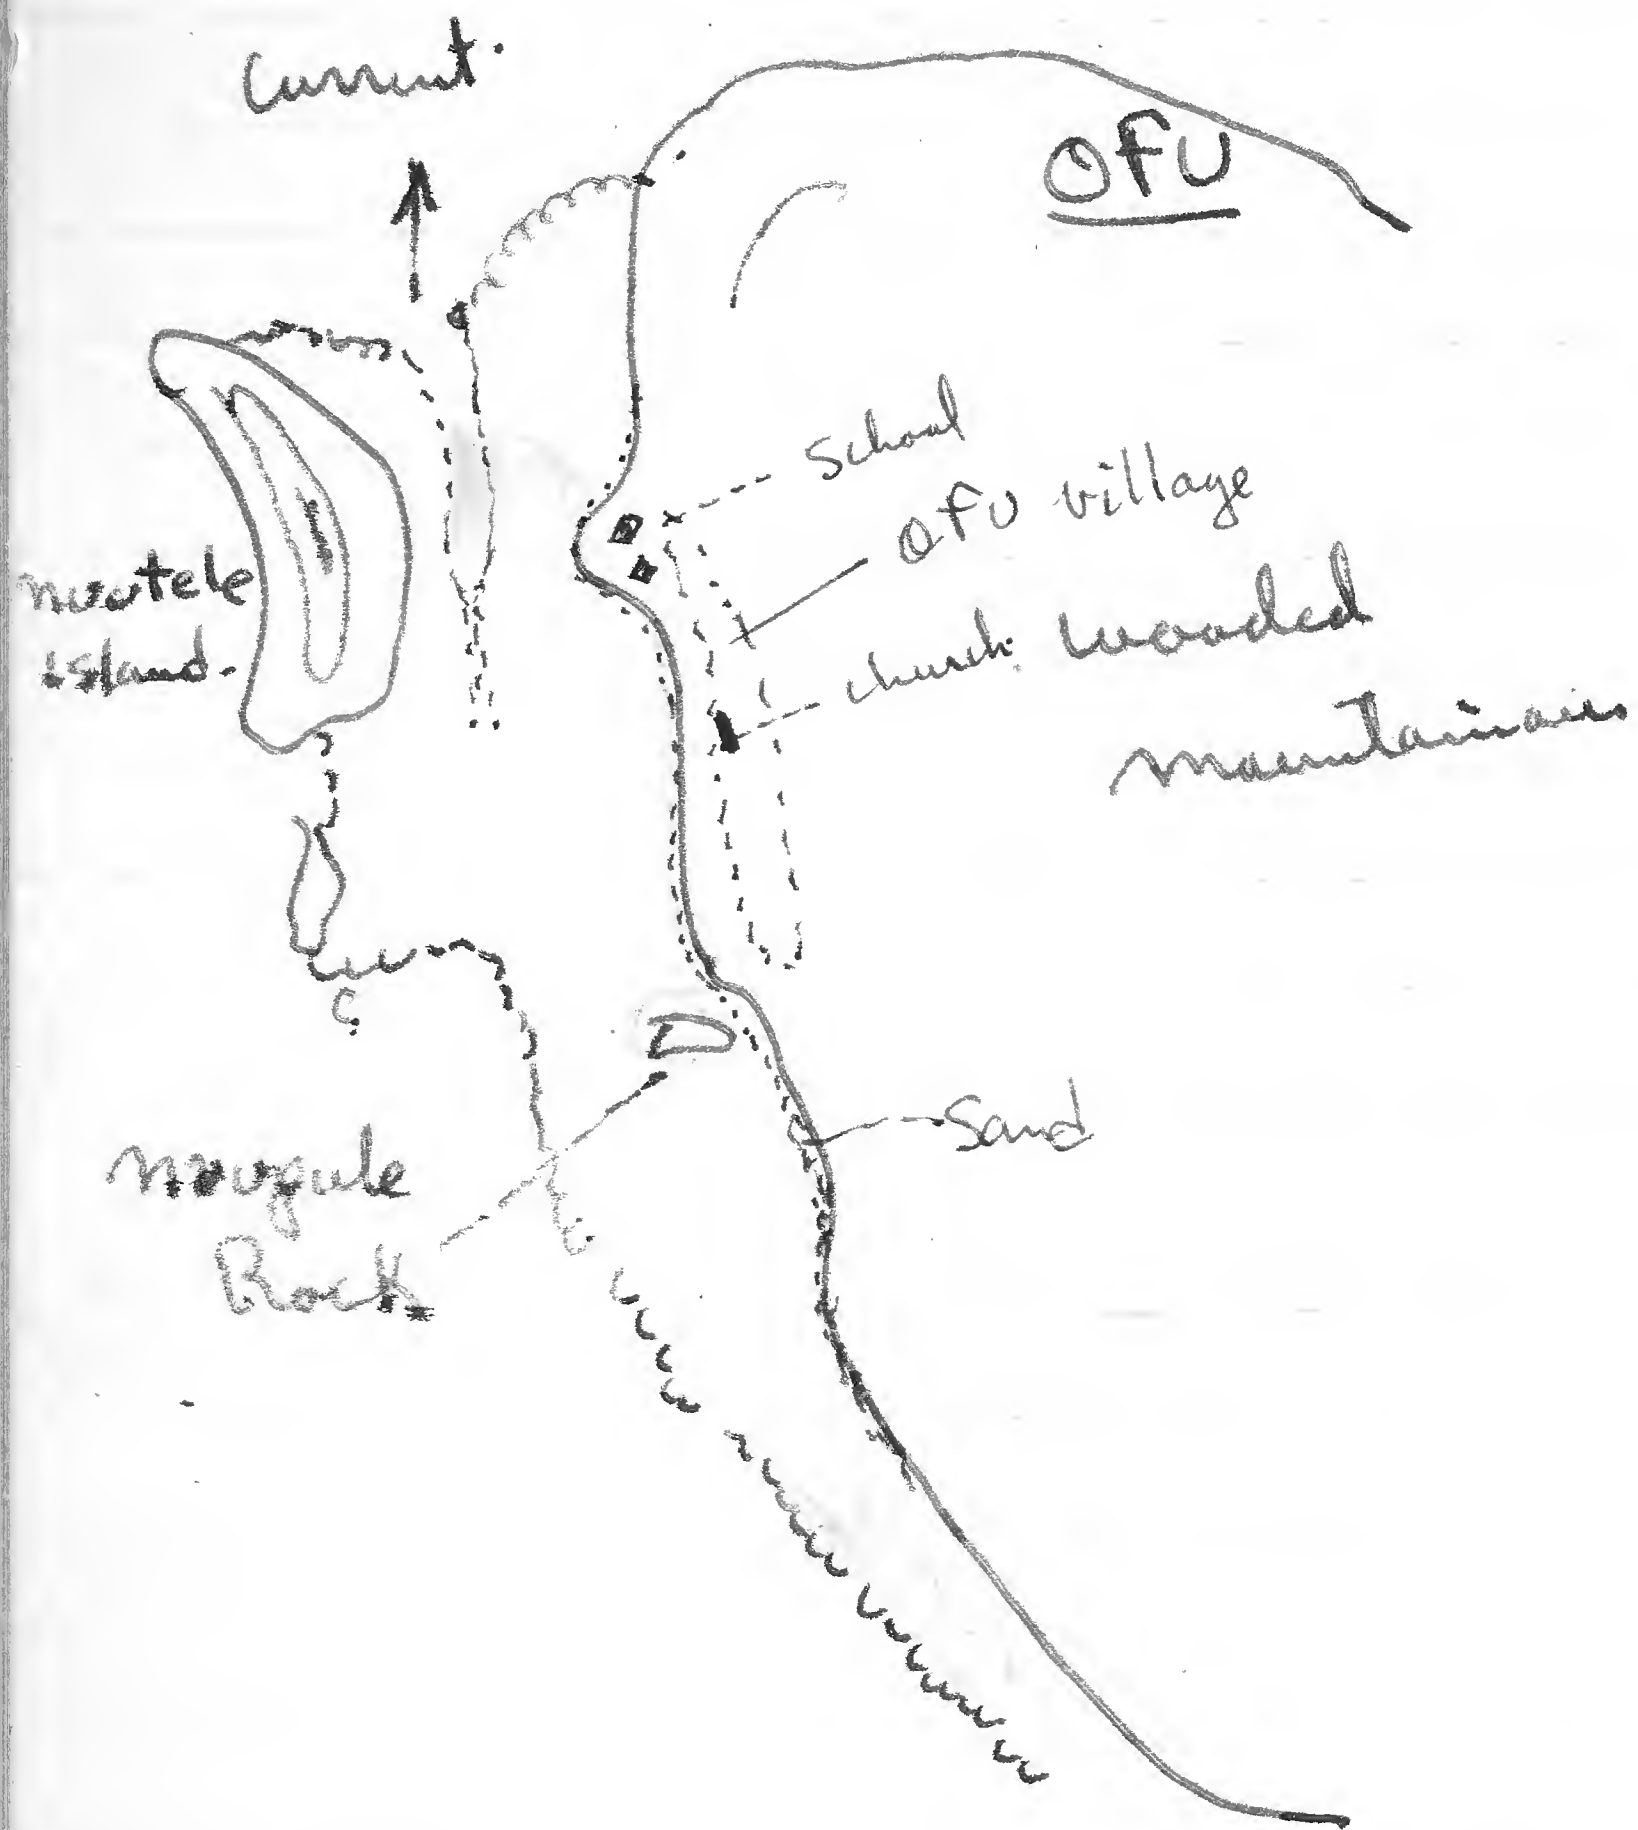 Current.
OFU
School
OFU village
church.
wooded
mountainous
nuutele
Island.
Sand
Rock